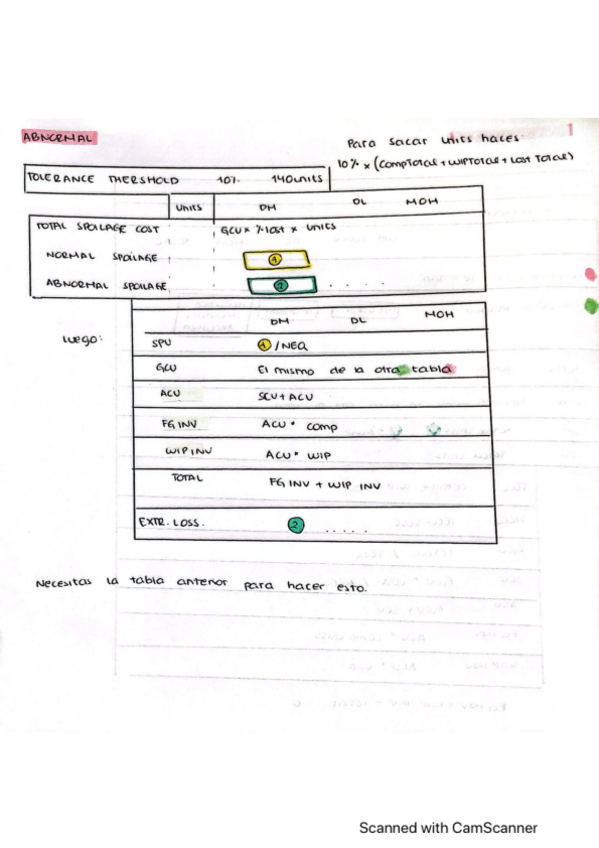 ABNORMAL
1
Para sacar units haces:
10% x (CompTotal + WIPTotal + Lost Total)
TOLERANCE THERSHOLD 10% 140 units
UNITS DM DL MOH
TOTAL SPOILAGE COST GCU x % lost x UNITS
NORMAL SPOILAGE 1
ABNORMAL SPOILAGE 2 . . . . .
Luego:
DM DL MOH
SPU 1 /NEQ
GCU El mismo de la otra tabla
ACU SCU + ACU
FG INV ACU * comp
WIP INV ACU * WIP
TOTAL FG INV + WIP INV
EXTR. LOSS. 2 . . . . .
Necesitas la tabla anterior para hacer esto.
Scanned with CamScanner